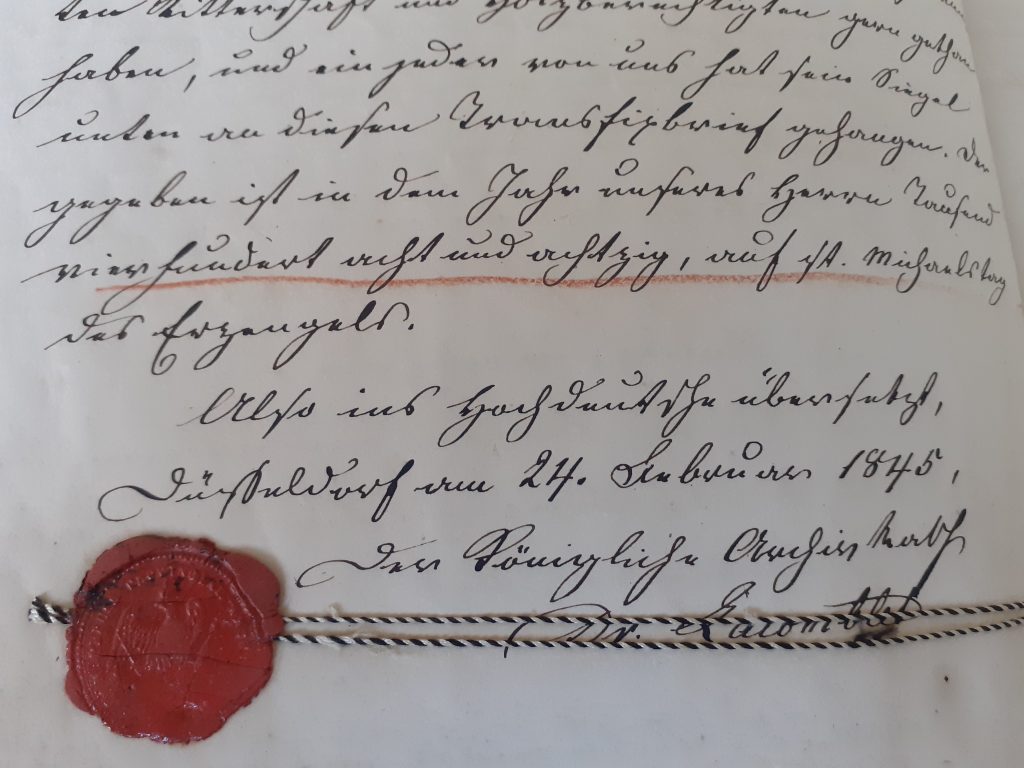 ten Ritterschaft und Holzberechtigten gern gethan
haben, und ein jeder von uns hat sein Siegel
unten an diesen Transfixbrief gehangen. Der
gegeben ist in dem Jahr unseres Herrn Tausend
vierhundert acht und achtzig, auf St. Michaelstag
des Erzengels.
Also ins Hochdeutsche übersetzt,
Düsseldorf am 24. Februar 1845,
Der Königliche Archiv Rath
Dr. Lacomblet